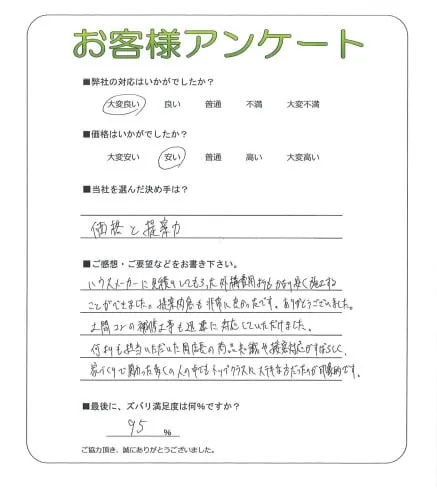 お客様アンケート
■弊社の対応はいかがでしたか？
大変良い 良い 普通 不満 大変不満
■価格はいかがでしたか？
大変安い 安い 普通 高い 大変高い
■当社を選んだ決め手は？
価格と提案力
■ご感想・ご要望などをお書き下さい。
ハウスメーカーに見積りしてもらった外構費用よりもかなり安く施工する
ことができました。提案内容も非常に良かったです。ありがとうございました。
土間コンの補修工事も迅速に対応していただけました。
何よりも担当いただいた店長の商品知識や提案対応がすばらしく、
家づくりで関わった多くの人の中でもトップクラスに大好きな方だったのが印象的です。
■最後に、ズバリ満足度は何％ですか？
95 %
ご協力頂き、誠にありがとうございました。